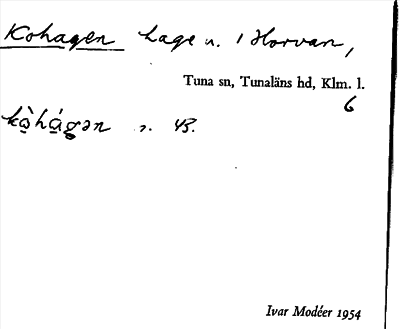 Kohagen hage n. i Horvan,
Tuna sn, Tunaläns hd, Klm. l.
6
kò̠há̠gən
Ivar Modéer 1954